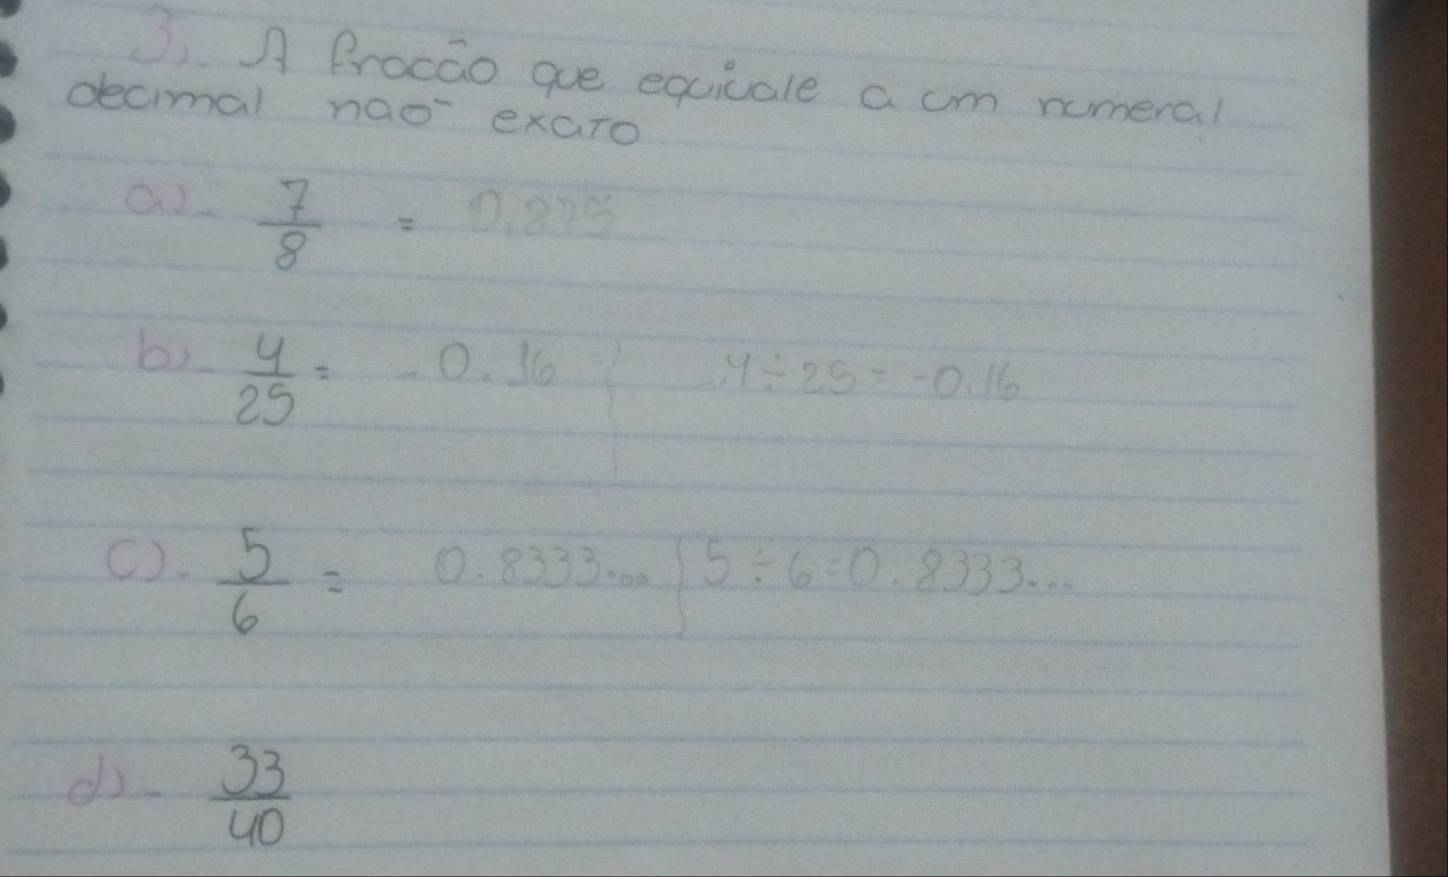 3). A Fração que equivale a um numeral
decimal não exato
a)- 7/8 = 0.875
b)- 4/25 = -0.16 -4÷25=-0.16
c)- 5/6 = 0.8333... 5÷6=0.8333...
d)- 33/40